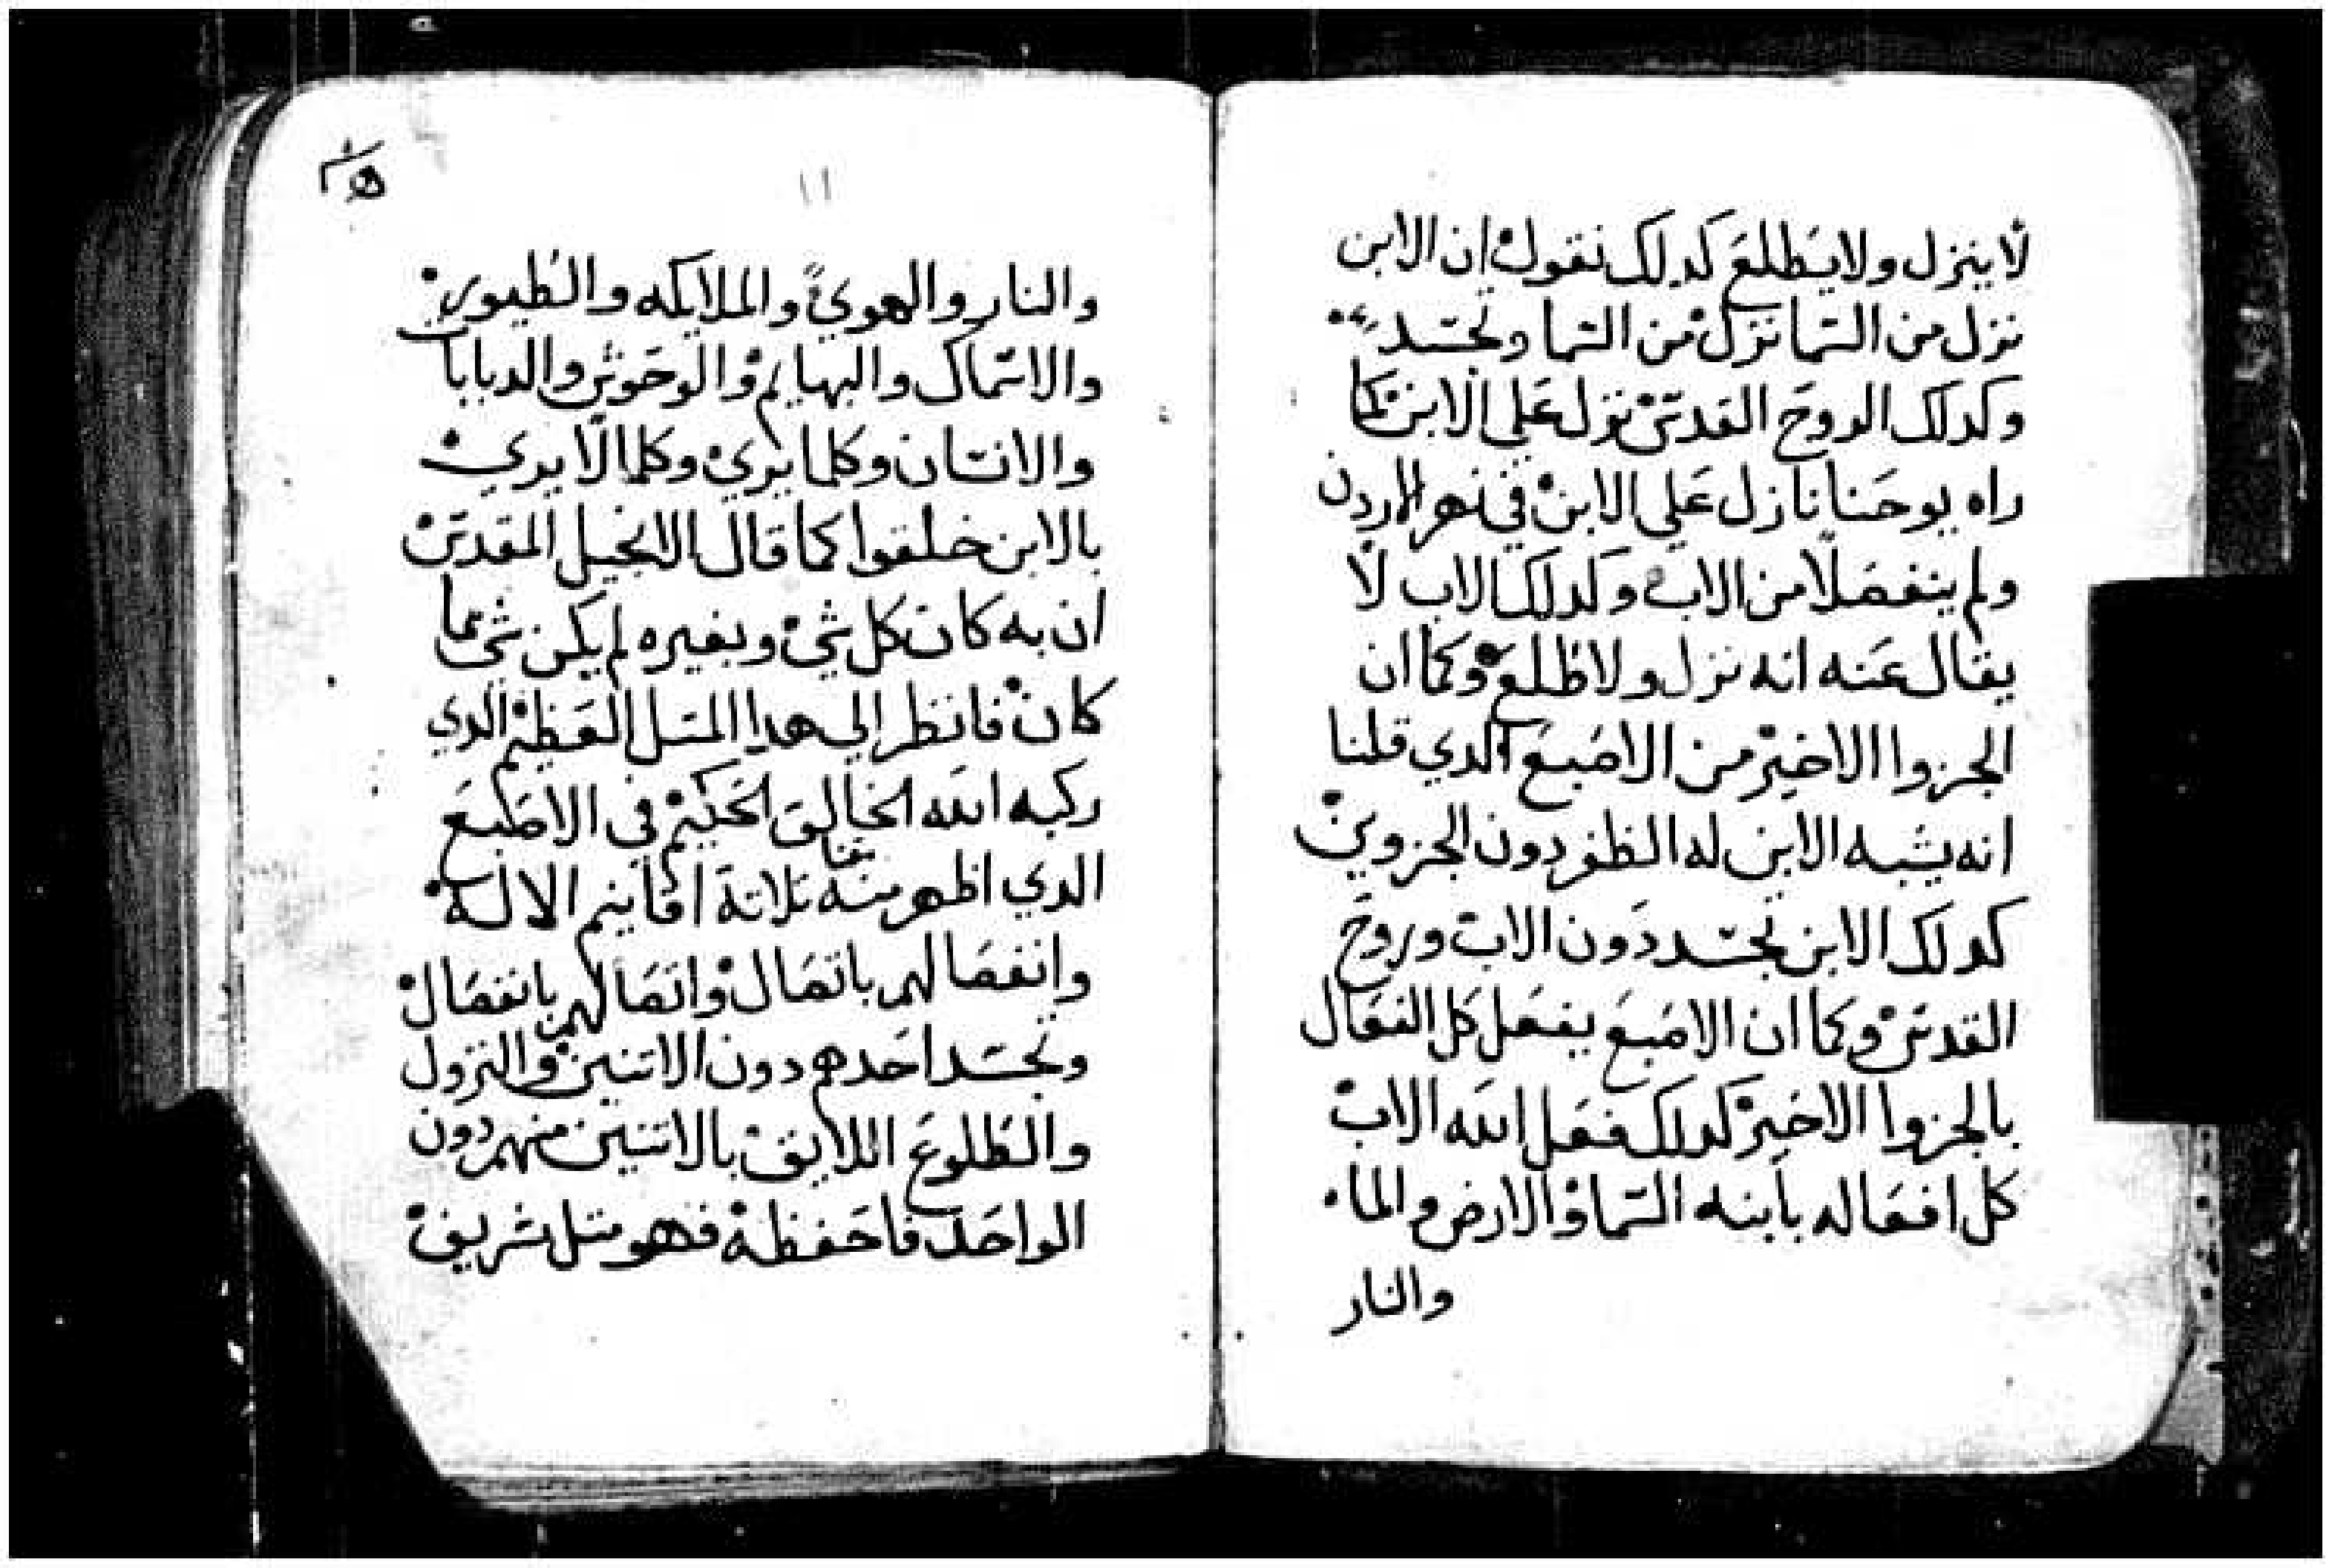 لا ينزل ولا يطلع كدلك نقول ان الابن
نزل من السما نزل من السما وتجسد
وكدلك الروح القدس نزل علي الابن كما
راه يوحنا نازل علي الابن في نهر الاردن
ولم ينفصلا من الاب وكدلك الاب لا
يقال عنه انه نزل ولا طلع وكما ان
الجزوا الاخير من الاصبع الدي قلنا
انه يشبه الابن له الظفر دون الجزوين
كدلك الابن تجسد دون الاب وروح
القدس وكما ان الاصبع يفعل كل الفعال
بالجزوا الاخير كدلك فعل الله الاب
كل افعاله بابنه السما والارض والما
والنار
١١
والنار والهوي والملايكه والطيور
والاسماك والبهايم والوحوش والدبابات
والانسان وكلما يري وكلما لا يري
بالابن خلقوا كما قال الانجيل المقدس
ان به كان كل شي وبغيره لم يكن شي مما
كان فانظر الي هدا المتل العظيم الدي
ركبه الله الخالق الحكيم في الاصبع
الدي اظهر منه تلاتة اقانيم الاله
وانفصالهم باتصال واتصالهم بانفصال
وتجسد احدهم دون الاتنين والنزول
والطلوع اللايق بالاتنين منهم دون
الواحد فاحفظة فهو متل شريف